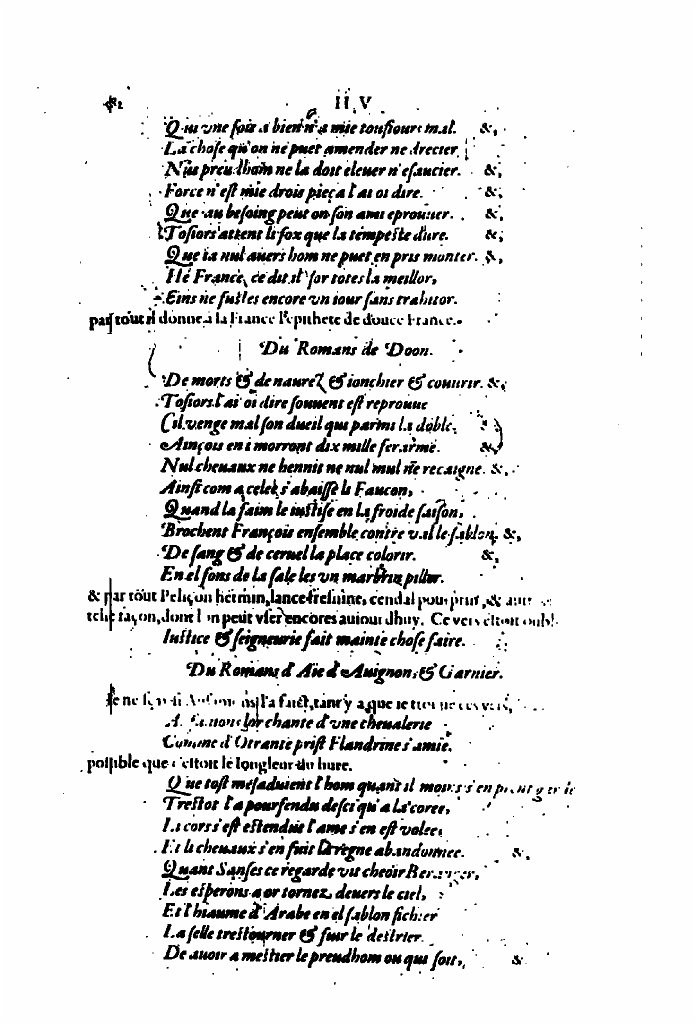 II V
Qui vne fois a bien n'a mie tousiours mal. &,
La chose qu'on ne puet amender ne drecier
Nus preudhom ne la doit eleuer n'esaucier. &,
Force n'est mie drois pieça l'ai oi dire. &,
Que au besoing peut on son ami eprouuer. &,
Tosiors attent li fox que la tempeste dure. &,
Que ia nul auers hom ne puet en pris monter. &,
Hé France, ce dit il sor totes la meillor,
Eins ne fustes encore vn iour sans trahitor.
par tout il donne à la France l'epithete de douce France.
Du Romans de Doon.
De morts & de naurez & ionchier & couurir. &,
Tosiors l'ai oi dire souuent est reprouue
Cil venge mal son dueil qui parmi la doble.
Ainçois en i morront dix mille fer armé. &,
Nul cheuaux ne hennit ne nul mul ne recaigne. &,
Ainsi com a celez s'abaisse li Faucon,
Quand la faim le iustise en la froide saison,
Brochent François ensemble contre val le sablon, &,
De sang & de ceruel la place colorir. &,
En el fons de la sale les vn marbrin piller.
& par tout Peliçon hermin, lance fresnine, cendal pourprin, & autre
telle façon, dont l'on peut vser encores auiourdhuy. Ce vers estoit oubl.
Iustice & seigneurie fait mainte chose faire.
Du Romans d'Aie d'Auignon, & Garnier.
Ie ne sçay si
chante d'vne cheualerie
Comme d'Otrante prist Flandrine s'amie.
possible que c'estoit le Iongleur du liure.
Que tost mesaduient l'hom quant il moins s'en prent garde
Trestot l'a pourfendu desci qu'a la coree,
Li cors s'est estendu e l'ame s'en est volee,
Et li cheuaux s'en fuit la regne abandonnee. &,
Quant Sanses ce regarde vit cheoir Berenger,
Les esperons a or tornez deuers le ciel,
Et l'hiaume d'Arabe en el sablon fichier
La selle trestourner & fuir le destrier.
De auoir a mestier le preudhom ou qui soit, &